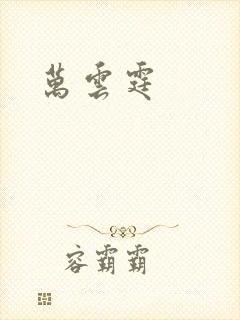 萬雲霆
容霸霸